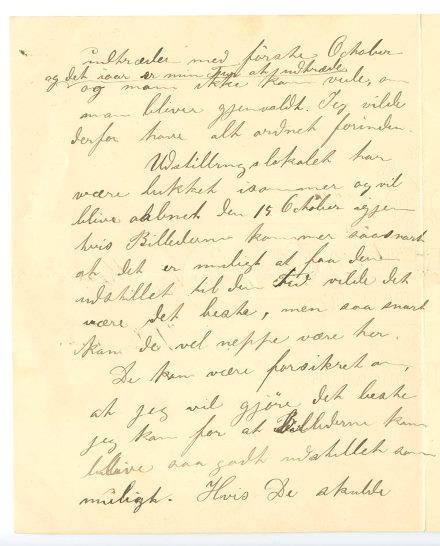 indtræder med förste October
og det iaar er min Tur at indtræde
og man ikke kan vide, om
man bliver gjenvaldt. Jeg vilde
derfor have alt ordnet forinden.
Udstillingslokalet har
være lukket isommer og vil
blive aabnet den 15 October igjen
hvis Billederne kommer saasnart
at det er muligt at faa dem
udstillet til den Tid vilde det
være det beste, men saa snart
kan de vel neppe være her.
De kan være forsikret om,
at jeg vil gjöre det beste
jeg kan for at Billederne kan
blive saa godt udstillet som
muligt. Hvis De skulde